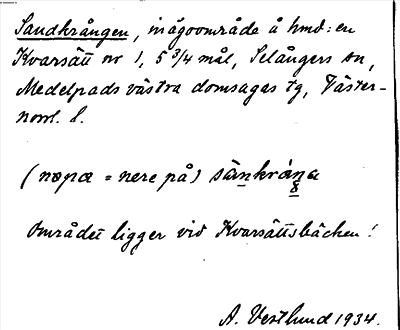 Sandkrången, inägoområde å hmd: en
Kvarsätt nr 1, 5 3/4 mål, Selångers sn,
Medelpads västra domsagas tg, Väster-
norrl. l.
(nɷpɷ = nere på) sänkråŋa
Området ligger vid Kvarsättsbäcken!
A. Vestlund 1934.